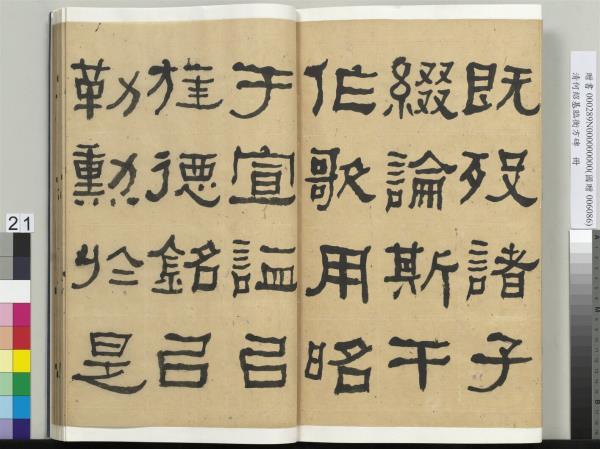 既歿諸子
綴論斯干
作歌用昭
于宣謚㠯
旌德銘㠯
勒勳於是
贈書 000289N000000000(國贈 006086)
清何紹基臨衡方碑 冊
21